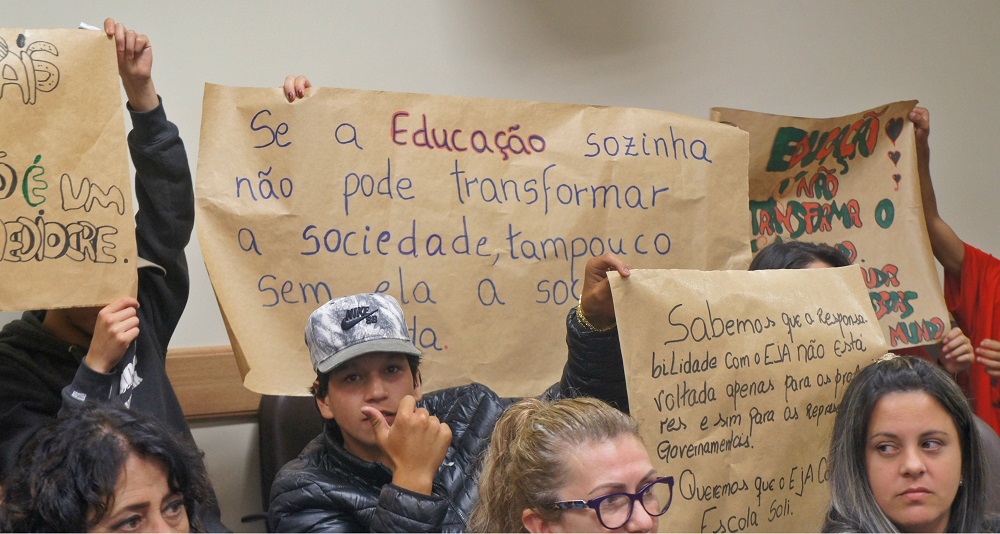 É UM
Se a Educação sozinha
não pode transformar
a sociedade, tampouco
sem ela a
NIKE
SB
EDUCAÇÃO
NÃO
TRANSFORMA O
MUNDO
Sabemos que a Responsa
bilidade com o EJA não está
voltada apenas para os
res e sim para os
Governamentais.
Queremos que o EJA
Escola Soli.